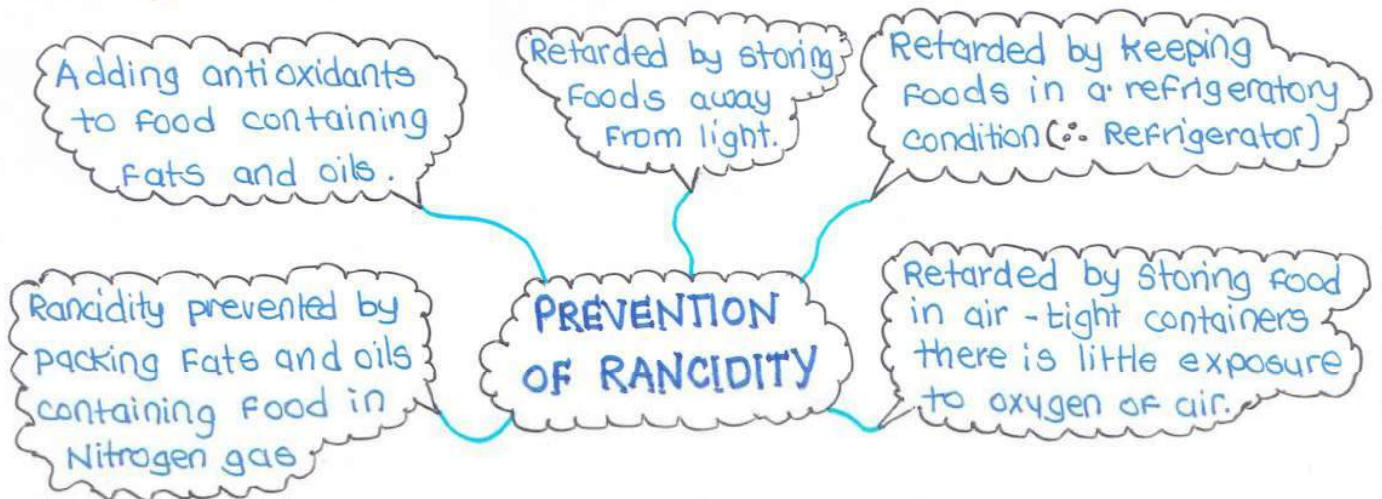 Adding antioxidants
to food containing
fats and oils.
Retarded by storing
foods away
from light.
Retarded by keeping
foods in a refrigeratory
condition (∴ Refrigerator)
PREVENTION
OF RANCIDITY
Rancidity prevented by
packing fats and oils
containing food in
Nitrogen gas
Retarded by Storing food
in air-tight containers
there is little exposure
to oxygen of air.